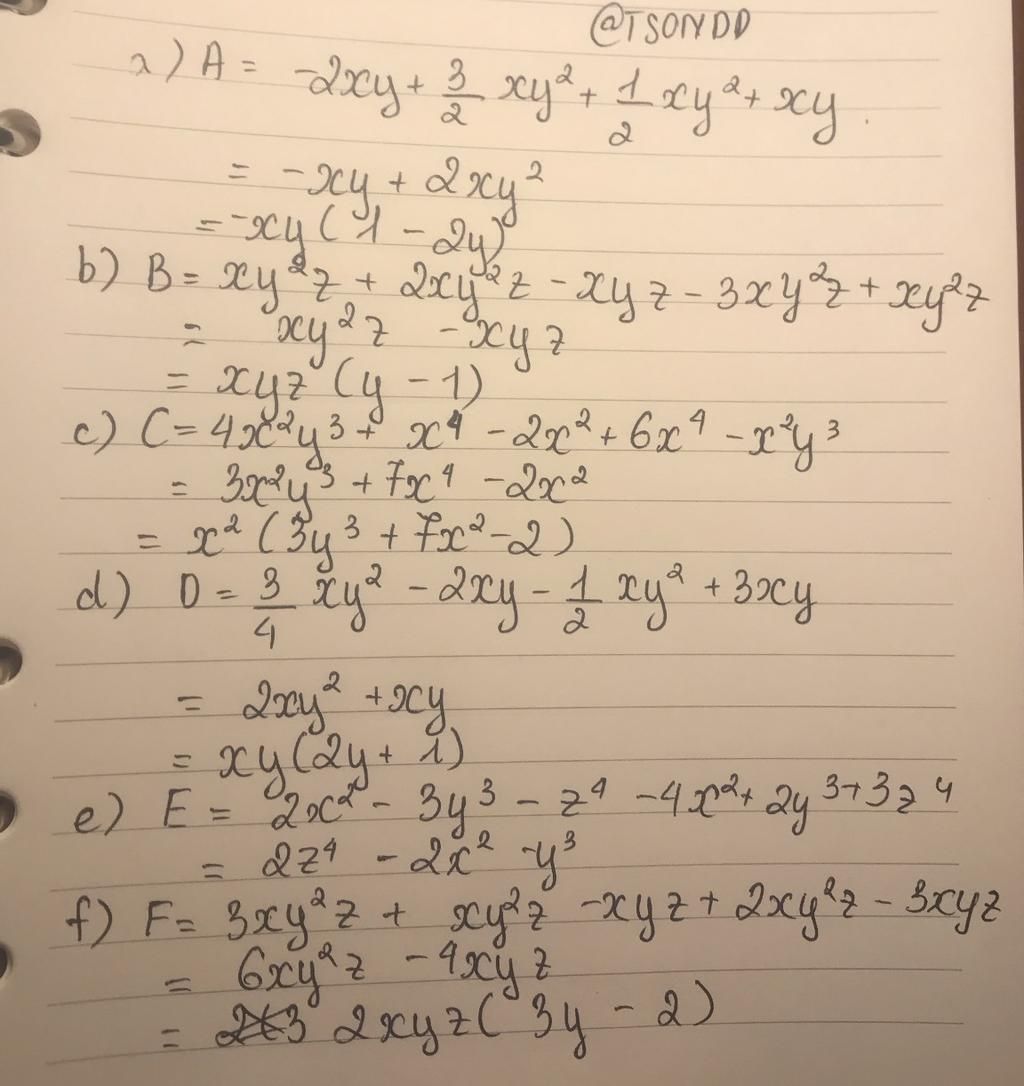 @TSONDD
a) A = -2xy + 3/2 xy² + 1/2 xy² + xy.
= -xy + 2xy²
= -xy (1 - 2y)
b) B = xy²z + 2xy²z - xyz - 3xy²z + xy²z
= xy²z - xyz
= xyz (y - 1)
c) C = 4x²y³ + x⁴ - 2x² + 6x⁴ - x²y³
= 3x²y³ + 7x⁴ - 2x²
= x² (3y³ + 7x² - 2)
d) D = 3/4 xy² - 2xy - 1/2 xy² + 3xy
= 2xy² + xy
= xy (2y + 1)
e) E = 2x² - 3y³ - z⁴ - 4x² + 2y³ + 3z⁴
= 2z⁴ - 2x² - y³
f) F = 3xy²z + xy²z - xyz + 2xy²z - 3xyz
= 6xy²z - 4xyz
= 2xyz (3y - 2)